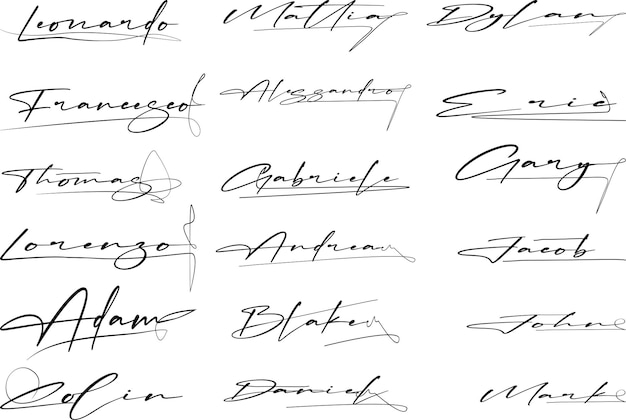 Leonardo Mattia Dylan
Francesco Alessandro Eric
Thomas Gabriele Gary
Lorenzo Andrea Jacob
Adam Blake John
Colin Daniel Mark